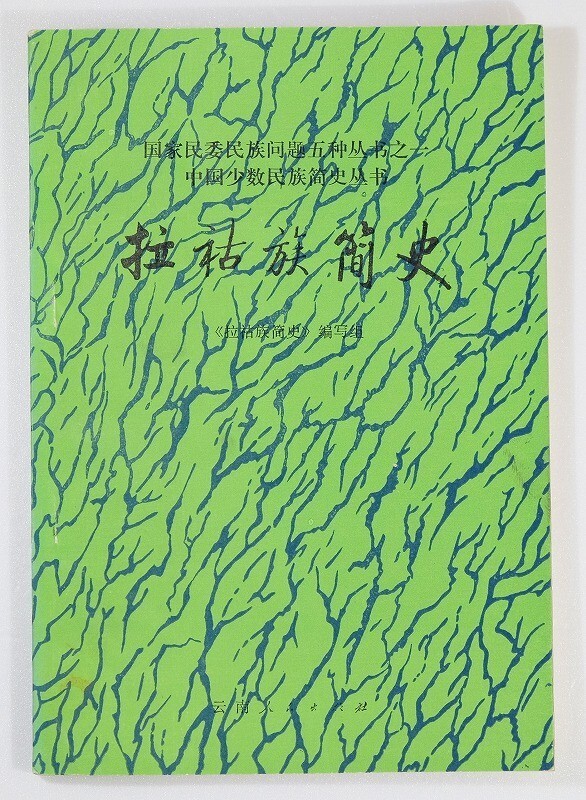 国家民委民族问题五种丛书之一
中国少数民族简史丛书
拉祜族简史
《拉祜族简史》编写组
云南人民出版社